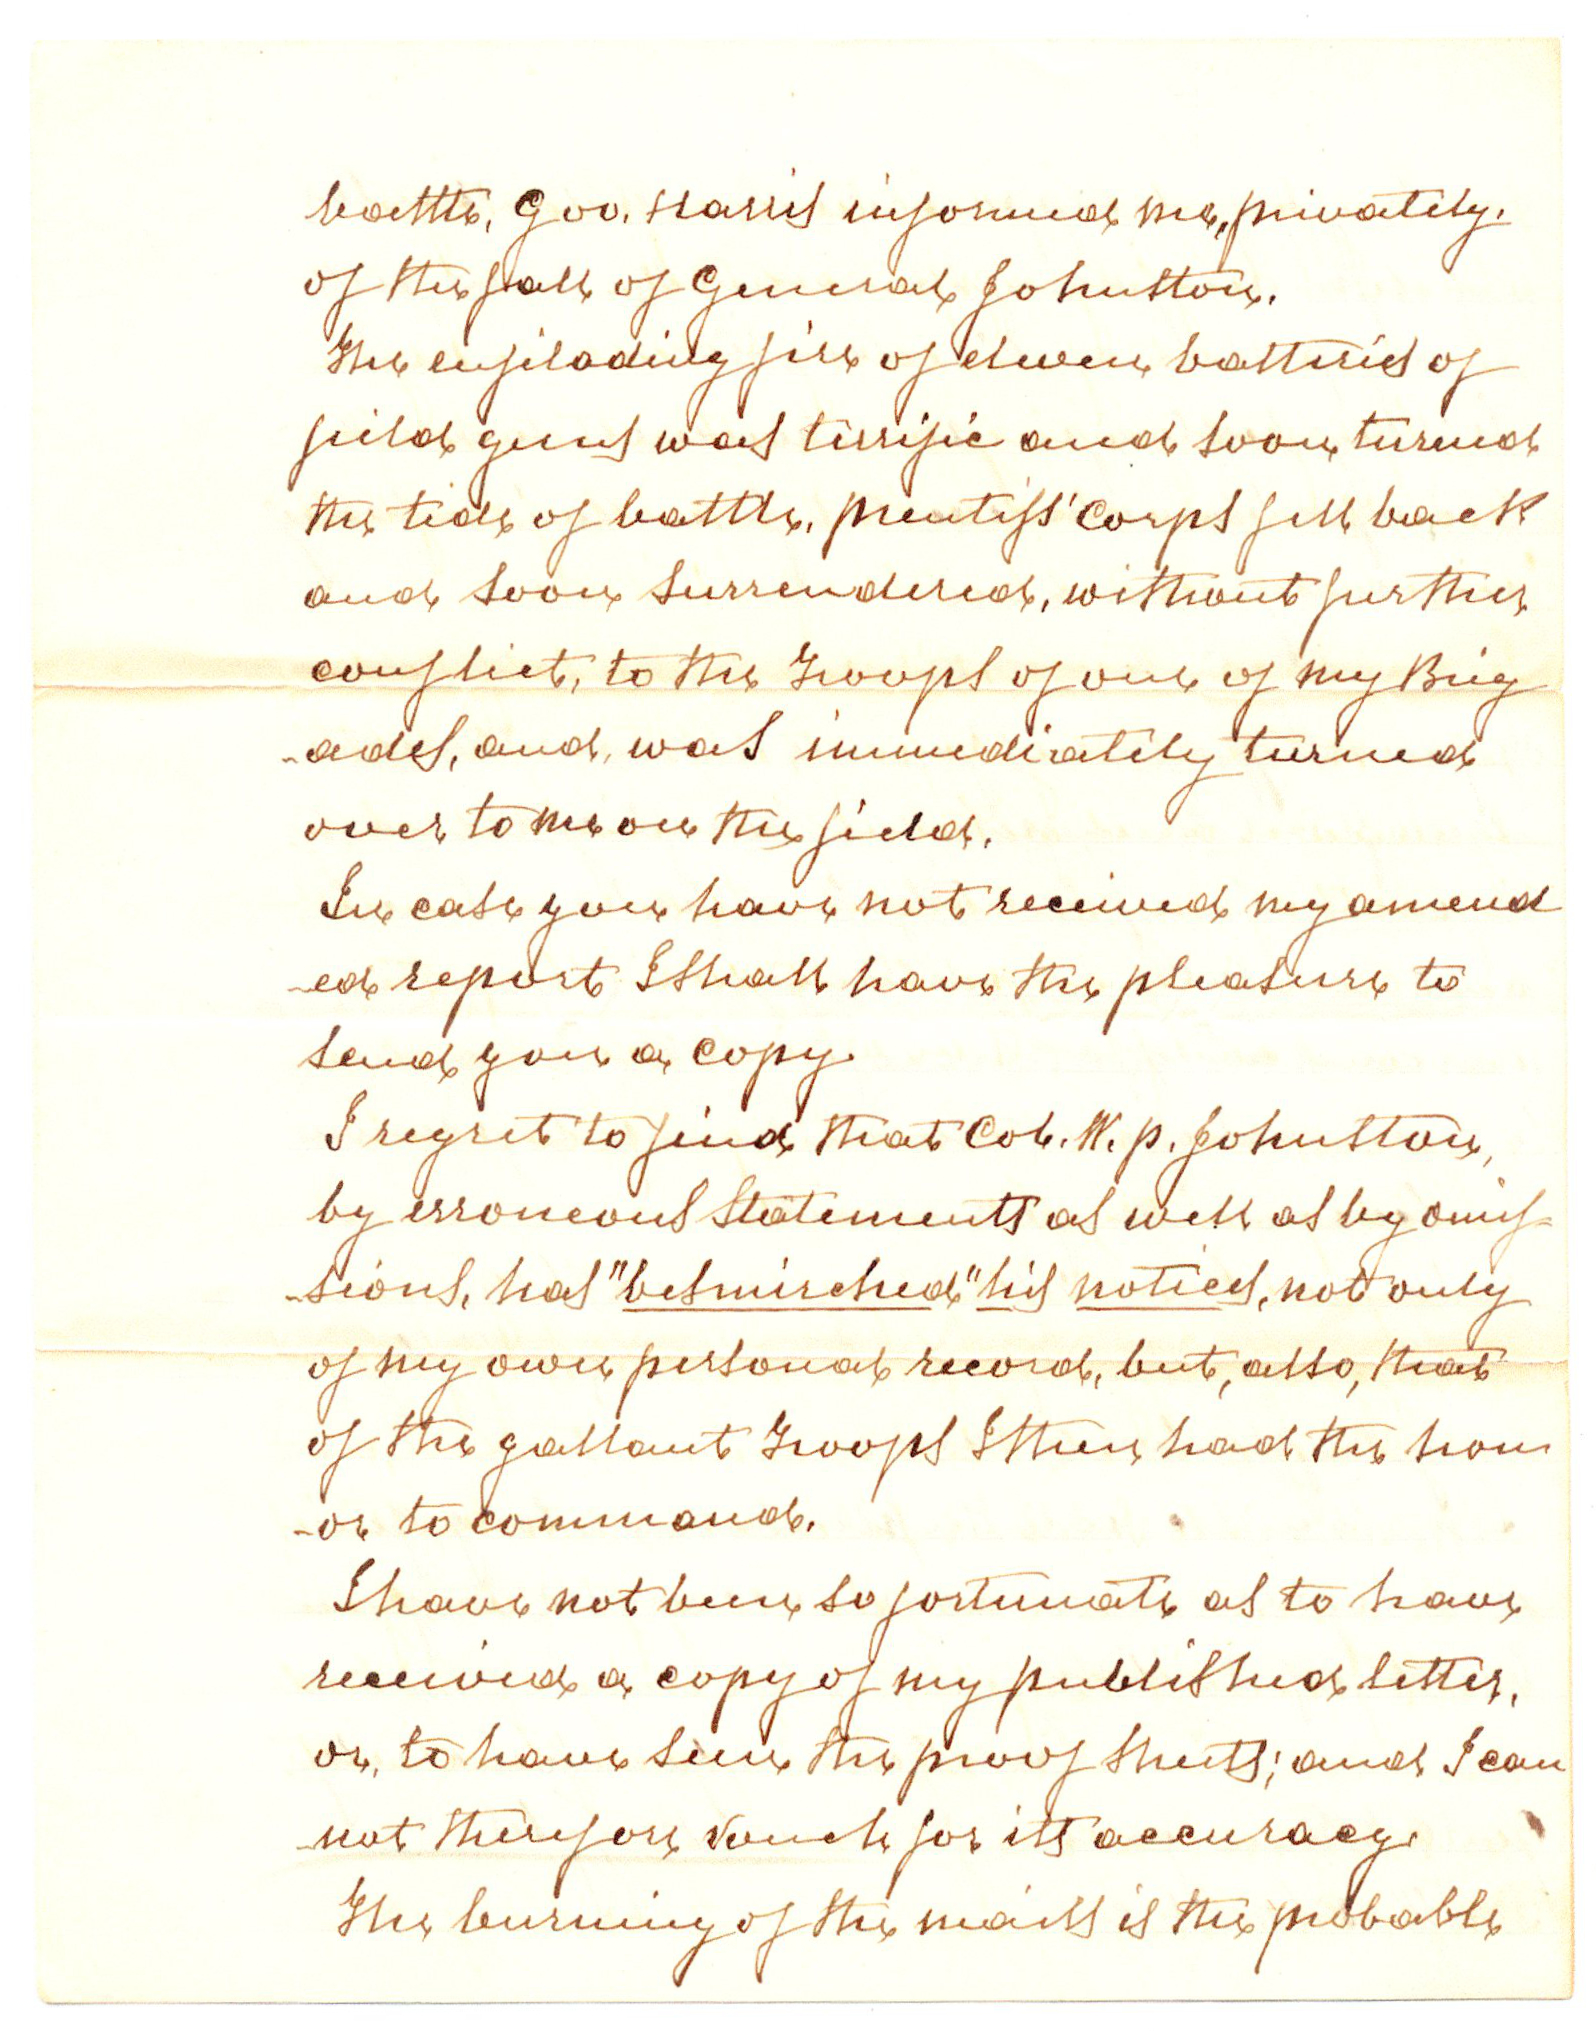 battle, Gov. Harris informed me, privately,
of the fall of General Johnston.
The enfilading fire of eleven batteries of
field guns was terrific and soon turned
the tide of battle. Prentiss' Corps fell back
and soon surrendered, without further
conflict, to the Troops of one of my Brig
-ades, and, was immediately turned
over to me on the field.
In case you have not received my amend
-ed report I shall have the pleasure to
send you a copy.
I regret to find that Col. W. P. Johnston,
by erroneous statements as well as by omis-
-sions, has "besmirched" his notices, not only
of my own personal record, but, also, that
of the gallant Troops I then had the hon
-or to command.
I have not been so fortunate as to have
received a copy of my published letter,
or, to have seen the proof sheets; and I can
not therefore vouch for its accuracy.
The burning of the mails is the probable